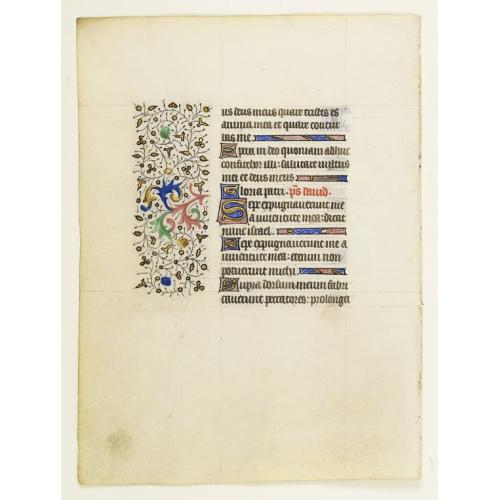 us deus meus quare tristis es
anima mea et quare contur
bas me.
Spera in deo quoniam adhuc
confitebor illi: salutare vultus
mei et deus meus.
Gloria patri. ps david.
Sepe expugnaverunt me
a iuventute mea: dicat
nunc israel.
Sepe expugnaverunt me a
iuventute mea: etenim non
potuerunt michi.
Supra dorsum meum fabri
caverunt peccatores: prolonga